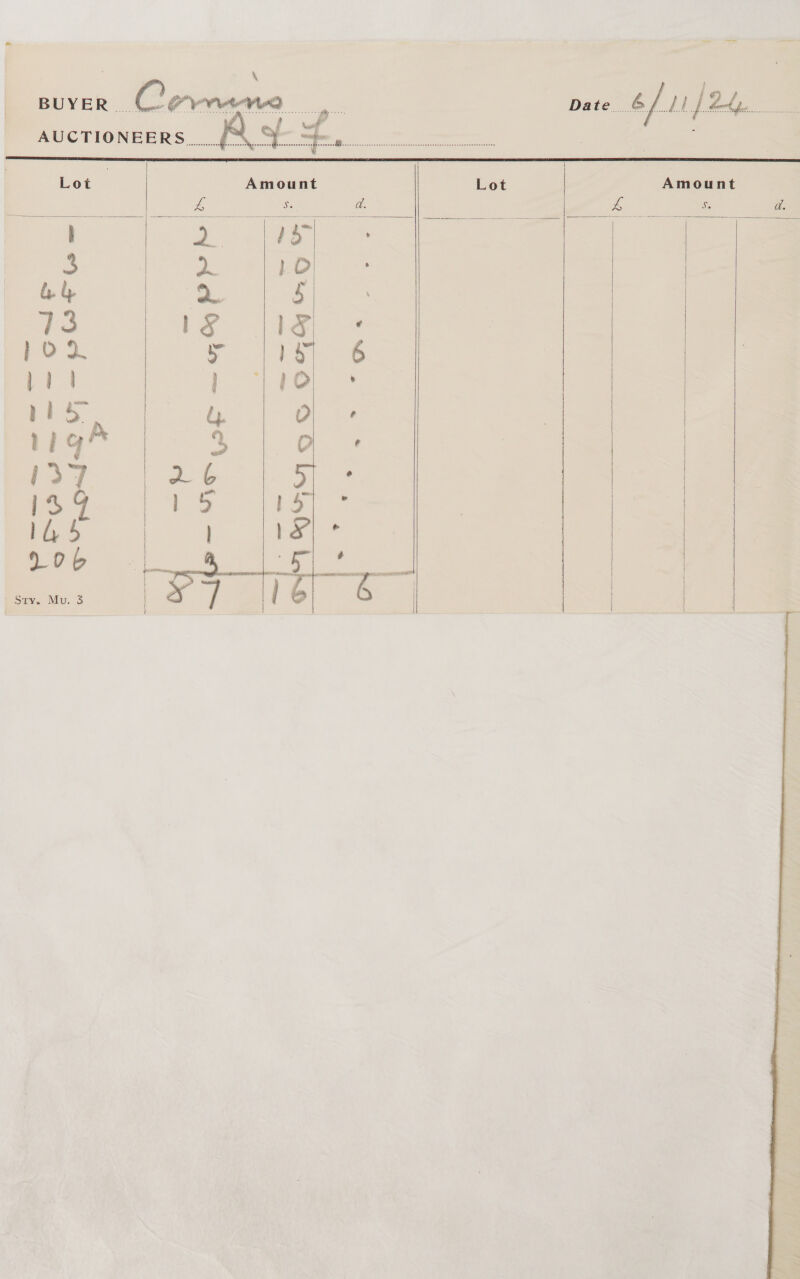 BUYER Date 6/11/24
AUCTIONEERS R & F.
Lot Amount Lot Amount
£ s. d. £ s. d.
1 2 15 .
3 2 10 .
44 2 5 .
73 18 18 .
102 5 15 6
111 1 10 .
115 4 0 .
119A 3 0 .
137 26 5 .
139 15 15 .
145 1 18 .
206 3 5 .
Sty. Mu. 3 87 16 6